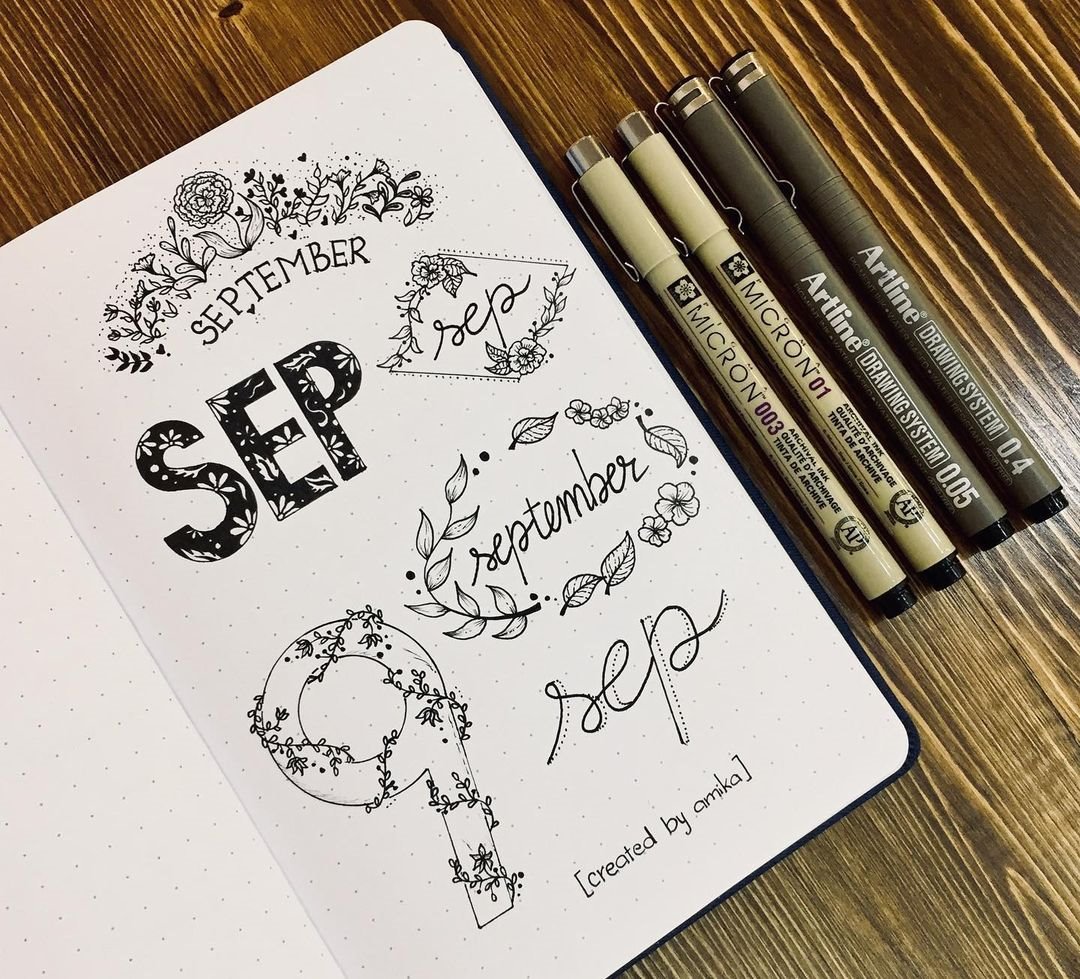 SEPTEMBER
sep
SEP
september
9
sep
[created by amika]
MICRON™ 003
ARCHIVAL INK
QUALITÉ D'ARCHIVAGE
TINTA DE ARCHIVE
AP
MICRON™ 01
ARCHIVAL INK
QUALITÉ D'ARCHIVAGE
TINTA DE ARCHIVE
AP
Artline® DRAWING SYSTEM 0.05
Artline® DRAWING SYSTEM 0.4